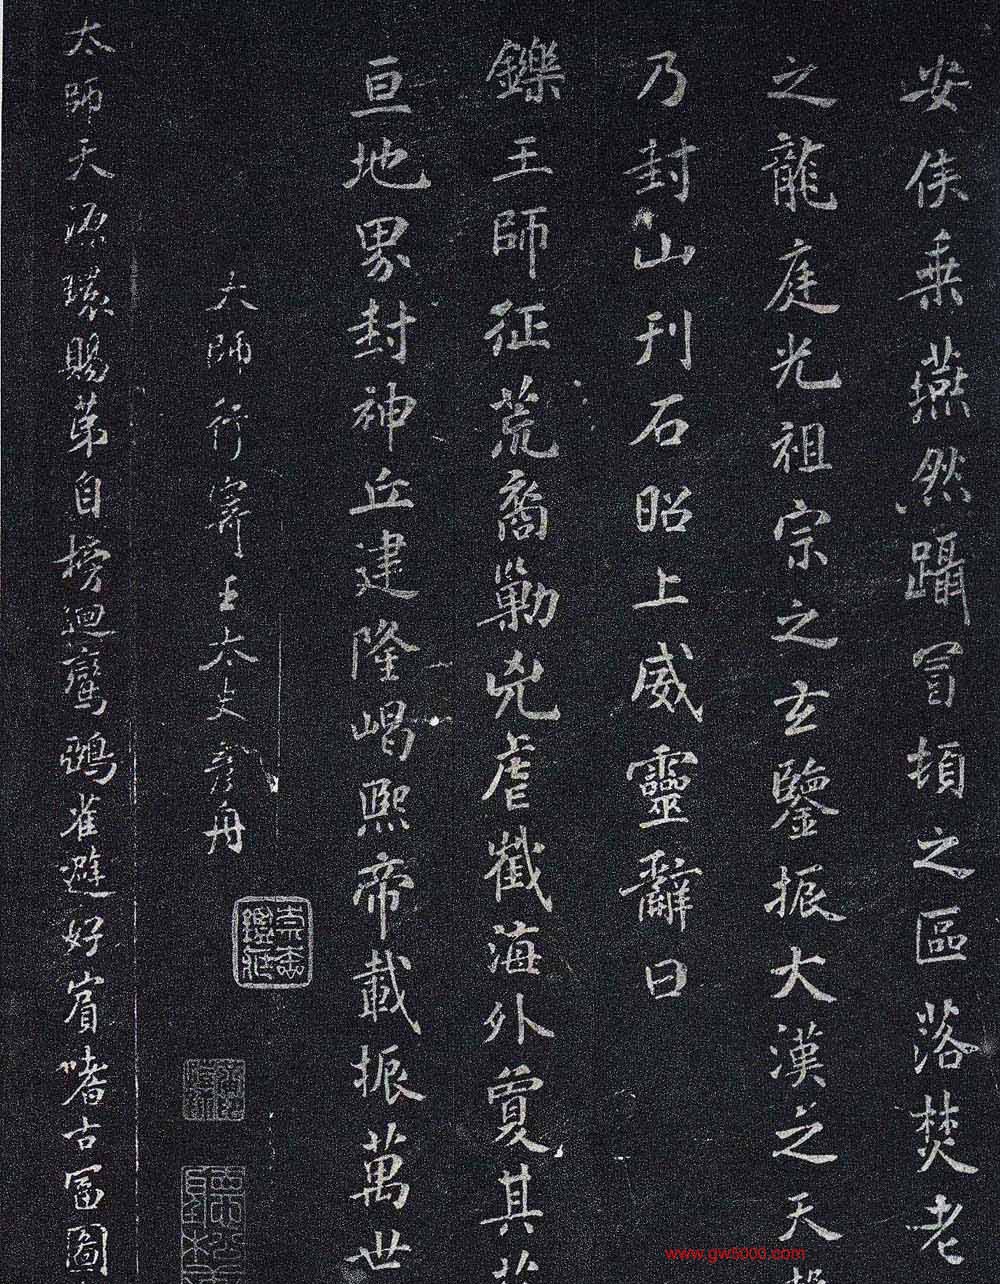 安侯乘燕然躡冒頓之區落焚老
之龍庭光祖宗之玄鑒振大漢之天
乃封山刊石昭上威靈辭曰
鑠王師征荒裔勦兇虐截海外夐其
亘地界封神丘建隆嵑熙帝載振萬世
太師行寄王太史彥舟
太師天源環賜第自榜迴鸞鵶雀避好賓嗜古冨圖
www.gw5000.com